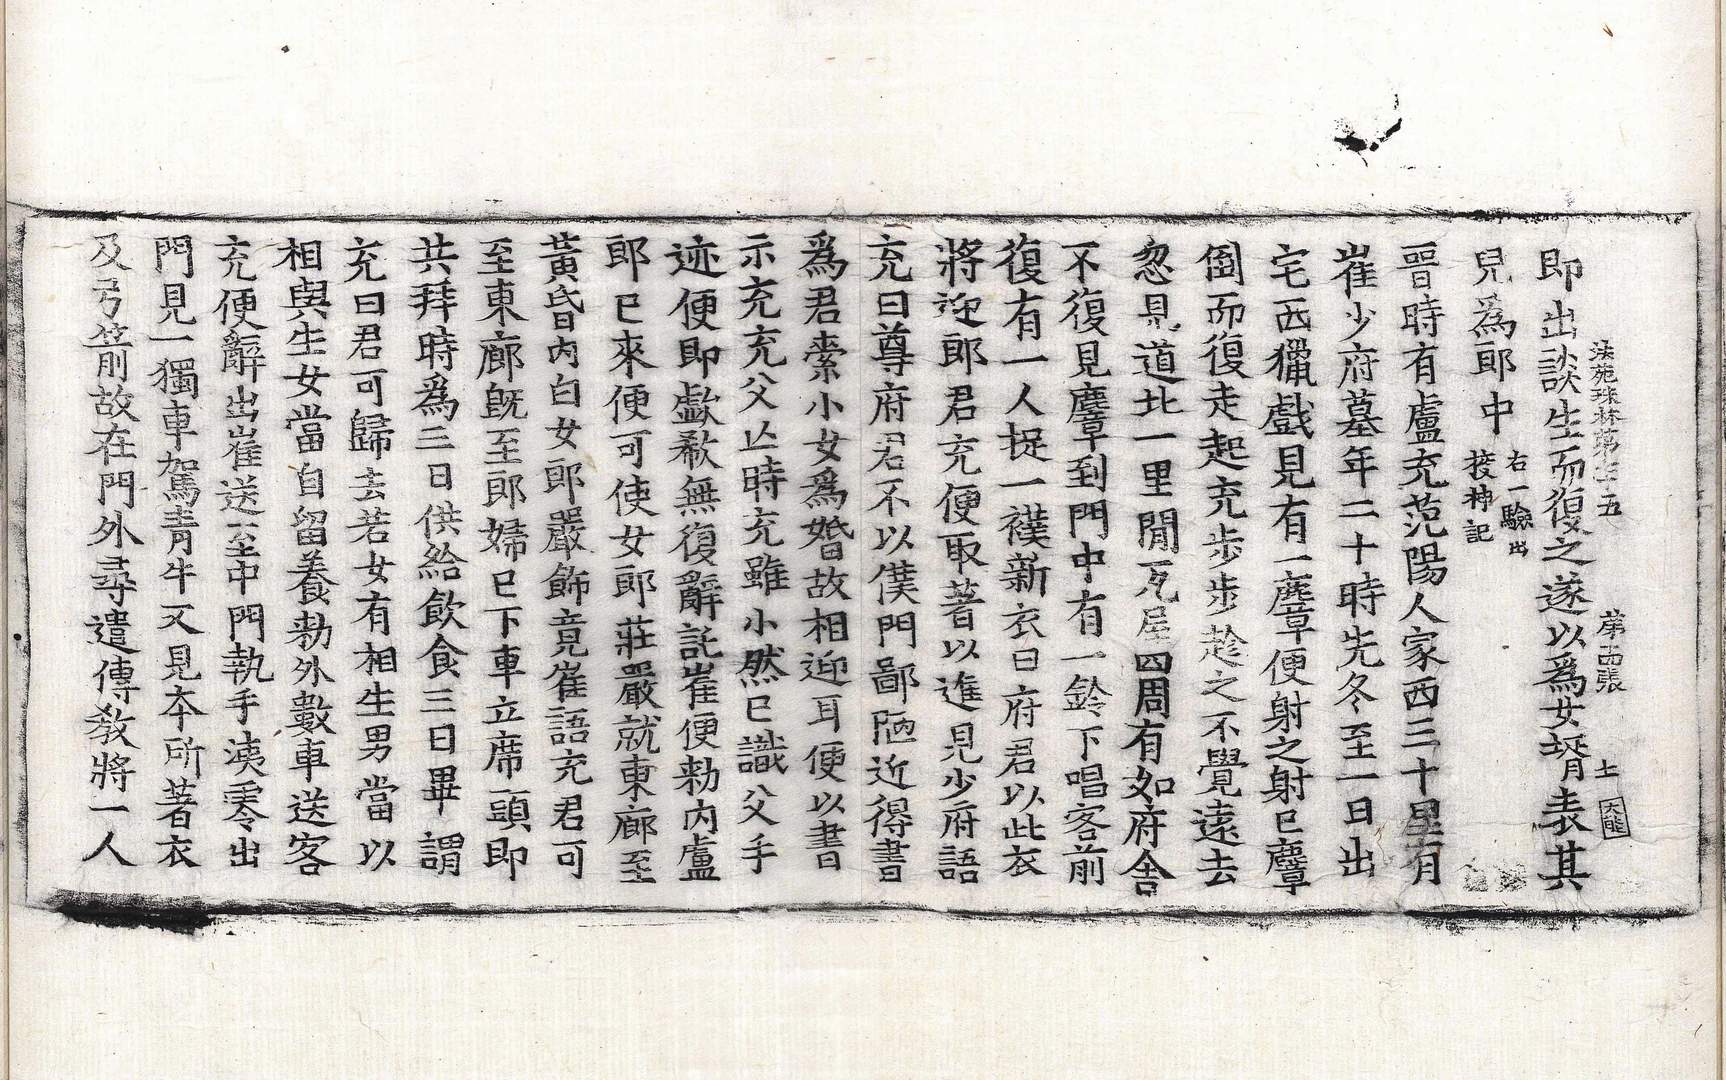 即出談生而復之遂以爲女壻表其
兒爲郎中
右一驗出
搜神記
法苑珠林第七十五 第函張 士 大能
晉時有盧充范陽人家西三十里有
崔少府墓年二十時先冬至一日出
宅西獵戲見有一麞便射之射已麞
倒而復走起充步步趁之不覺遠去
忽見道北一里閒瓦屋四周有如府舍
不復見麞到門中有一鈴下唱客前
復有一人捉一襆新衣曰府君以此衣
將迎郎君充便取著以進見少府語
充曰尊府君不以僕門鄙陋近得書
爲君索小女爲婚故相迎耳便以書
示充充父亡時充雖小然已識父手
迹便即歔欷無復辭託崔便勑內盧
郎已來便可使女郎莊嚴就東廊至
黃昏內白女郎嚴飾竟崔語充君可
至東廊既至郎婦已下車立席頭即
共拜時爲三日供給飲食三日畢謂
充曰君可歸去若女有相生男當以
相與生女當自留養勑外數車送客
充便辭出崔送至中門執手洟零出
門見一獨車駕青牛又見本所著衣
及弓箭故在門外尋遣傳教將一人